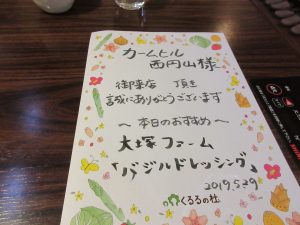 カームヒル
西円山様
御来店 頂き
誠にありがとうございます
～本日のおすすめ～
大塚ファーム
「バジルドレッシング」
2019.5.29
くるるの杜